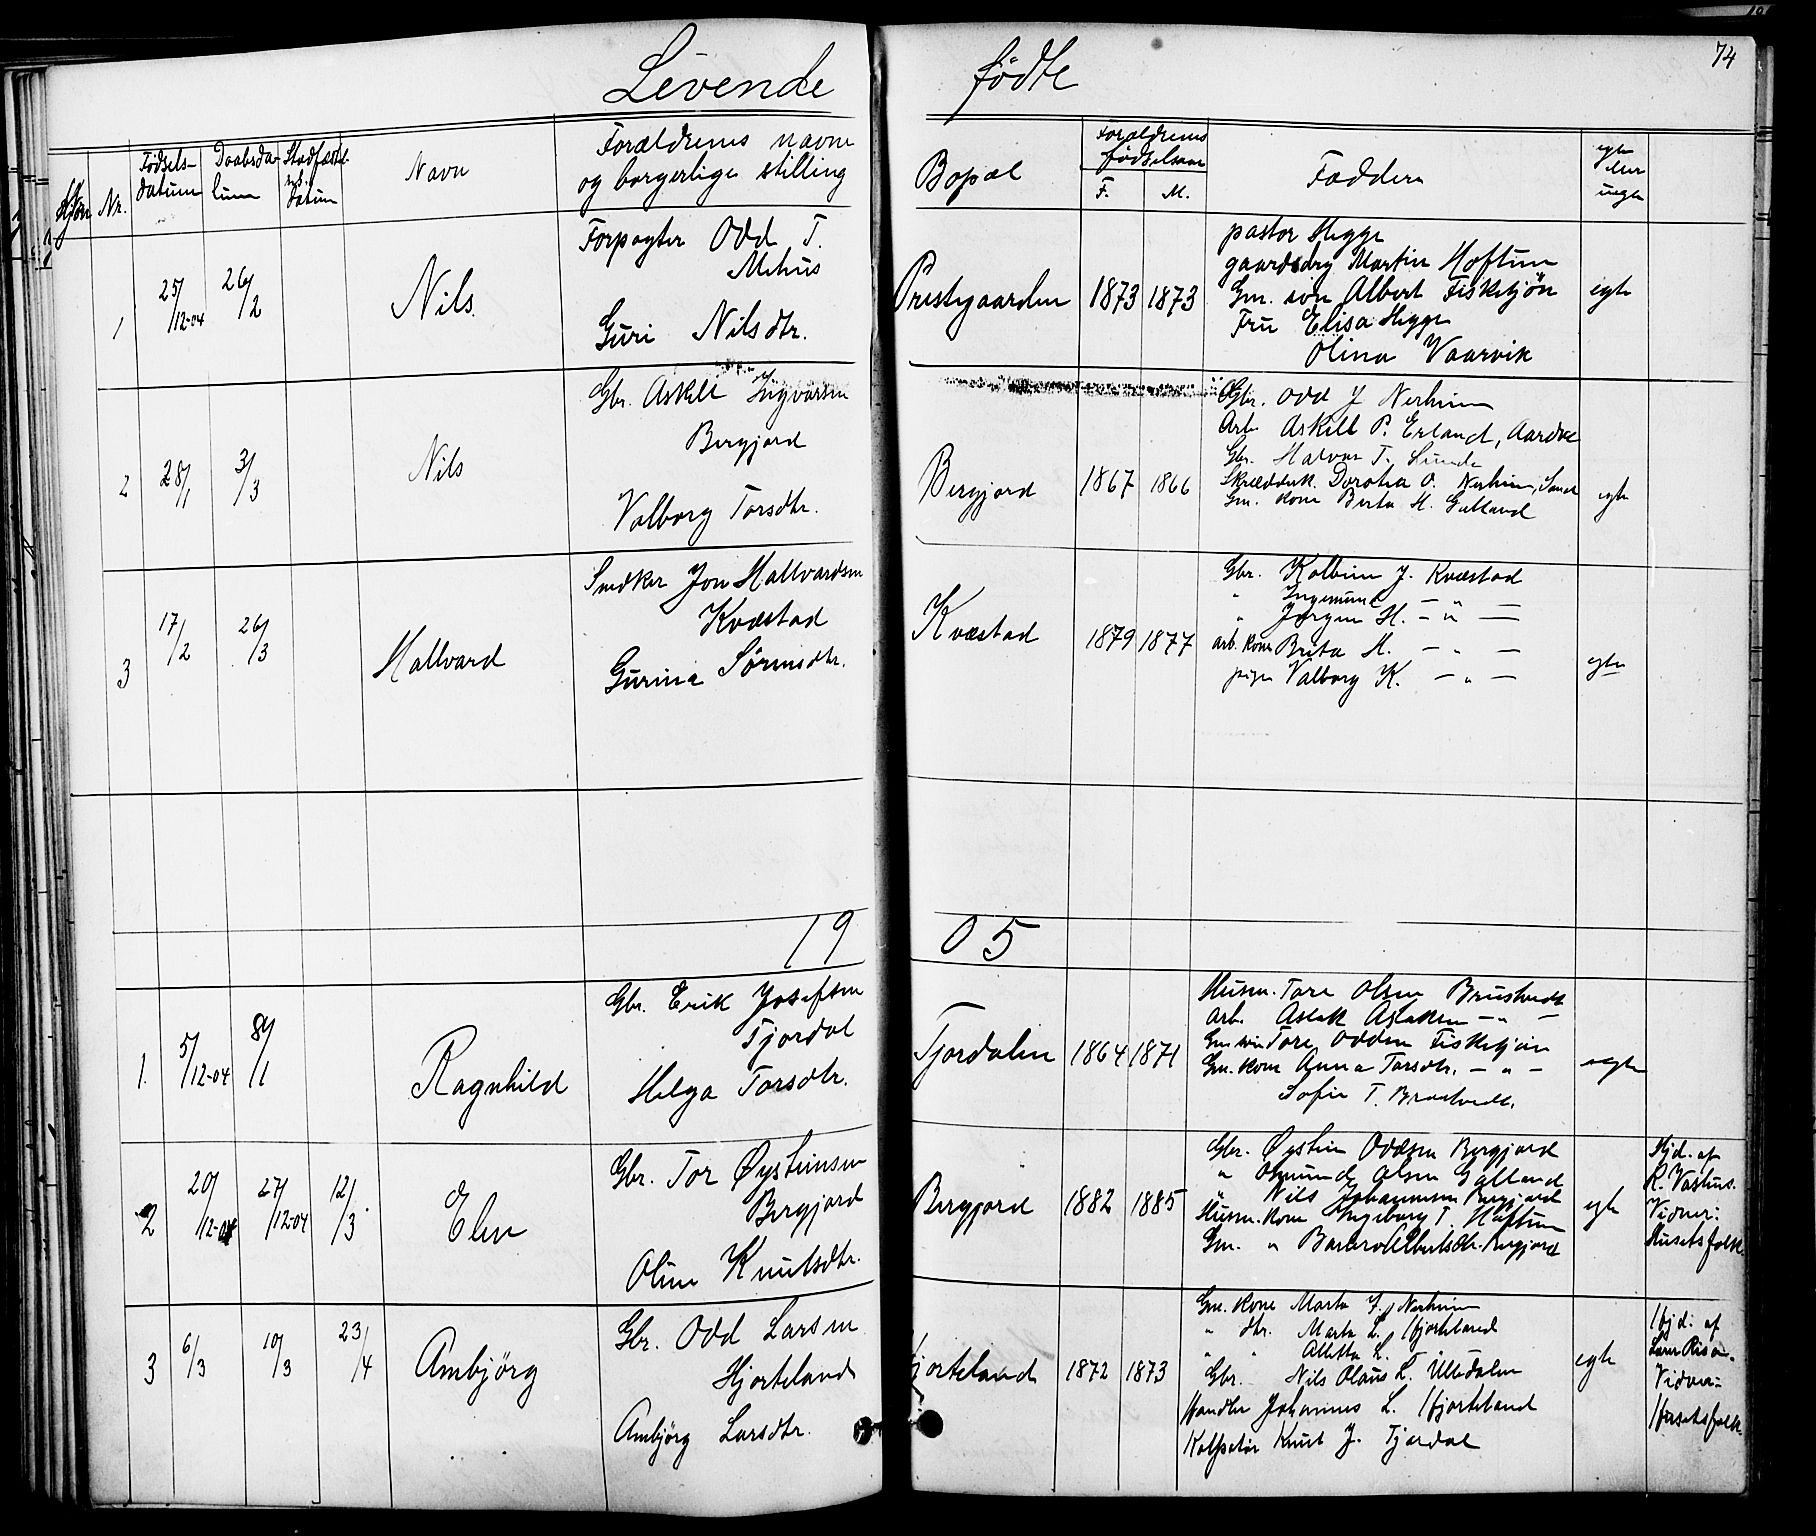 74
Levende fødte
Nr.
Fødsels-
datum
Daabsda-
tum
Stadfæstel.
datum
Navn
Forældrenes navne
og borgerlige stilling
Bopæl
Forældrenes
fødselsaar
F. M.
Faddere
egte
eller
uegte
1
25/12-04
26/2
Nils
Forpagter Odd T.
Mehus
Guri Nilsdtr.
Prestegaarden
1873 1873
pastor Hegge
gaardsdrg Martin Hoftun
Gm. søn Albert Fisketjøn
Fru Elisa Hegge
Olina Vaarvik
egte
2
28/1
3/3
Nils
Gbr. Askell Ingvarsen
Bergjord
Valborg Torsdtr.
Bergjord
1867 1866
Gbr. Odd J Nerheim
Arb. Askell P. Erland, Aardal
Gbr. Halvor T. Lunde
Skrædderk. Dorothea O. Nerheim, Sand
Gm. kone Berta H. Galland
egte
3
17/2
26/3
Hallvard
Snedker Jon Hallvardsen
Kvæstad
Gurina Sørensdtr.
Kvæstad
1879 1877
Gbr. Kolbein J. Kvæstad
" Ingemund — " —
" Jørgen H. — " —
arb. kone Berta H. — " —
pige Valborg K. — " —
egte
1905
1.
5/12-04
8/1
Ragnhild
Gbr. Erik Josefsen
Tjordal
Helga Torsdtr.
Tjordalen
1864 1871
Husm. Tore Olsen Brustvedt
Arb. Aslak Aslaksen — " —
Gm søn Tore Odden Fisketjøn
Gm. kone Anna Torsdtr. — " —
Sofie T. Brustvedt.
egte
2
20/12-04
27/12-04
12/3
Elen
Gbr. Tor Øysteinsen
Bergjord
Oline Knutsdtr.
Bergjord
1882 1885
Gbr. Øystein Oddsen Bergjord
" Osmund Olsen Galland
" Nils Johannesen Bergjord
Husm. kone Ingeborg T. Hoftun
Gm. " Albertsdtr. Bergjord
egte
Hjd. af
R. Vashus.
Vidner:
Husets folk.
3
6/3
10/3
23/4
Ambjørg
Gbr. Odd Larsen
Hjorteland
Ambjørg Larsdtr.
Hjorteland
1872 1873
Gm. kone Marta J. Nerheim
" dtr. Marta L. Hjorteland
" " Alletta L. "
Gbr. Nils Olaus L. Ulledalen
Handler Johannes L. Hjorteland
Kolportør Knut J. Tjordal
egte
Hjd. af
Vidner:
Husetsfolk.